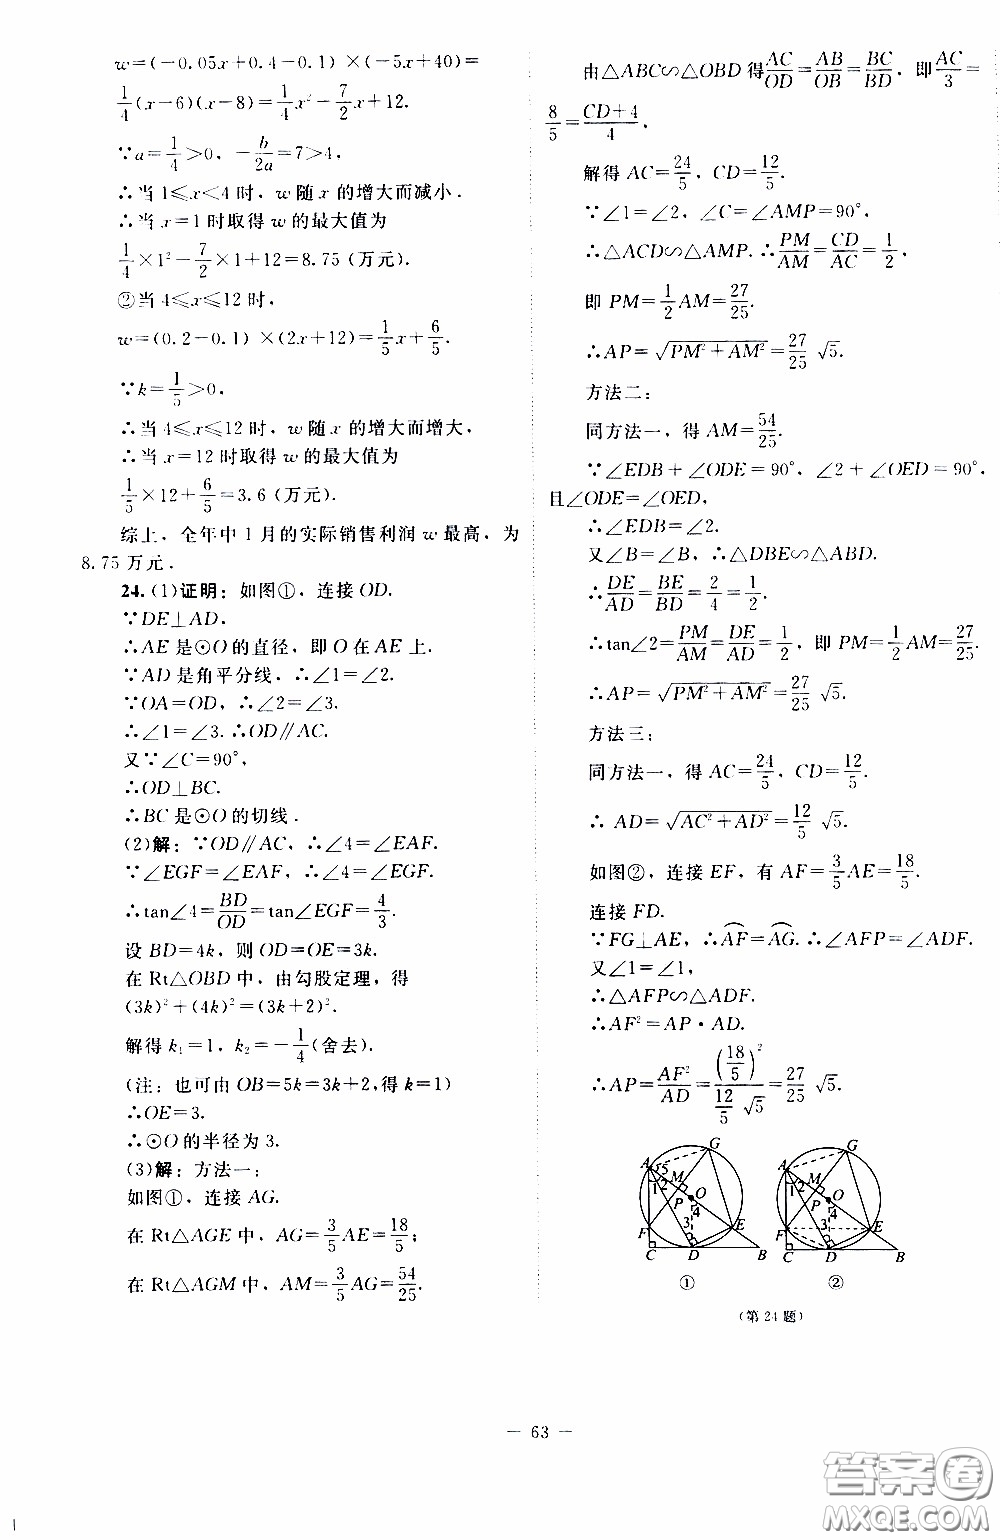 w=(-0.05x+0.4-0.1)×(-5x+40)=
1/4(x-6)(x-8)=1/4x²-7/2x+12.
∵a=1/4>0, -b/2a=7>4,
∴当1≤x<4时,w随x的增大而减小.
∴当x=1时取得w的最大值为
1/4×1²-7/2×1+12=8.75(万元).
②当4≤x≤12时,
w=(0.2-0.1)×(2x+12)=1/5x+6/5.
∵k=1/5>0,
∴当4≤x≤12时,w随x的增大而增大,
∴当x=12时取得w的最大值为
1/5×12+6/5=3.6(万元).
综上,全年中1月的实际销售利润w最高,为
8.75万元.
24.(1)证明:如图①,连接OD.
∵DE⊥AD.
∴AE是⊙O的直径,即O在AE上.
∵AD是角平分线,∴∠1=∠2.
∵OA=OD,∴∠2=∠3.
∴∠1=∠3.∴OD∥AC.
又∵∠C=90°,
∴OD⊥BC.
∴BC是⊙O的切线.
(2)解:∵OD∥AC,∴∠4=∠EAF.
∵∠EGF=∠EAF,∴∠4=∠EGF.
∴tan∠4=BD/OD=tan∠EGF=4/3.
设BD=4k,则OD=OE=3k.
在Rt△OBD中,由勾股定理,得
(3k)²+(4k)²=(3k+2)².
解得k₁=1,k₂=-1/4(舍去).
(注:也可由OB=5k=3k+2,得k=1)
∴OE=3.
∴⊙O的半径为3.
(3)解:方法一:
如图①,连接AG.
在Rt△AGE中,AG=3/5AE=18/5;
在Rt△AGM中,AM=3/5AG=54/25.
由△ABC∽△OBD得AC/OD=AB/OB=BC/BD,即AC/3=
8/5=CD+4/4.
解得AC=24/5,CD=12/5.
∵∠1=∠2,∠C=∠AMP=90°,
∴△ACD∽△AMP.∴PM/AM=CD/AC=1/2,
即PM=1/2AM=27/25.
∴AP=√(PM²+AM²)=27/25√5.
方法二:
同方法一,得AM=54/25.
∵∠EDB+∠ODE=90°,∠2+∠OED=90°,
且∠ODE=∠OED,
∴∠EDB=∠2.
又∠B=∠B,∴△DBE∽△ABD.
∴DE/AD=BE/BD=2/4=1/2.
∴tan∠2=PM/AM=DE/AD=1/2,即PM=1/2AM=27/25.
∴AP=√(PM²+AM²)=27/25√5.
方法三:
同方法一,得AC=24/5,CD=12/5.
∴AD=√(AC²+AD²)=12/5√5.
如图②,连接EF,有AF=3/5AE=18/5.
连接FD.
∵FG⊥AE,∴AF=AG.∴∠AFP=∠ADF.
又∠1=∠1,
∴△AFP∽△ADF.
∴AF²=AP·AD.
∴AP=AF²/AD=(18/5)²/(12/5√5)=27/25√5.
A 5 M G 1 2 P O 4 3 F E C D B
A M G 1 2 P O 4 3 F E C D B
① ②
(第24题)
— 63 —
答案圈
MXQE.COM